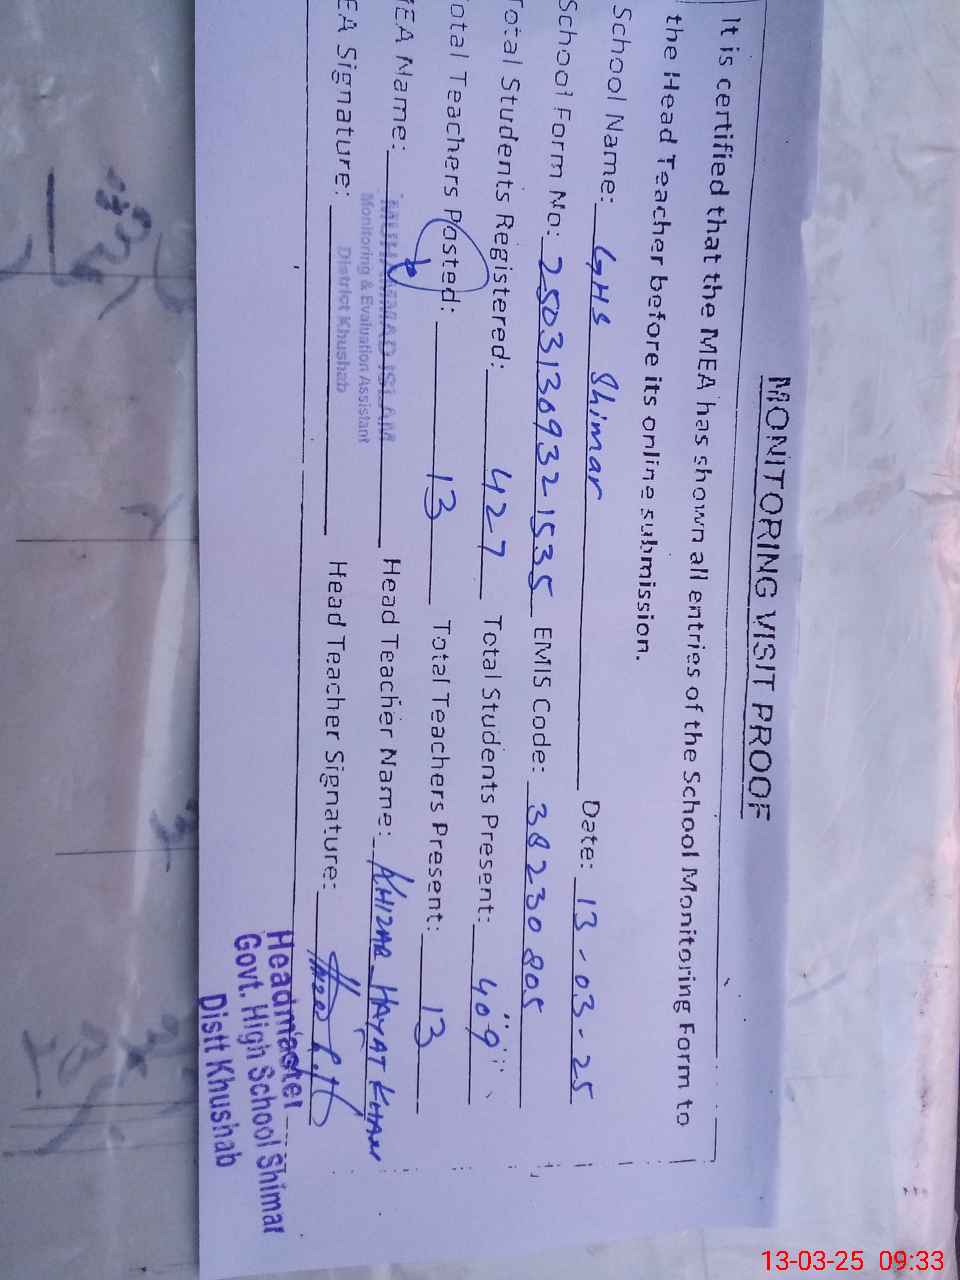 MONITORING VISIT PROOF
It is certified that the MEA has shown all entries of the School Monitoring Form to
the Head Teacher before its online submission.
School Name: GHS Shimar Date: 13-03-25
School Form No: 25031309321535 EMIS Code: 38230805
Total Students Registered: 427 Total Students Present: 409
otal Teachers Posted: 13 Total Teachers Present: 13
MEA Name: MUHAMMAD ISLAM Head Teacher Name: KHIZAR HAYAT KHAN
Monitoring & Evaluation Assistant
District Khushab
EA Signature: Head Teacher Signature:
Headmaster
Govt. High School Shimar
Distt Khushab
13-03-25 09:33